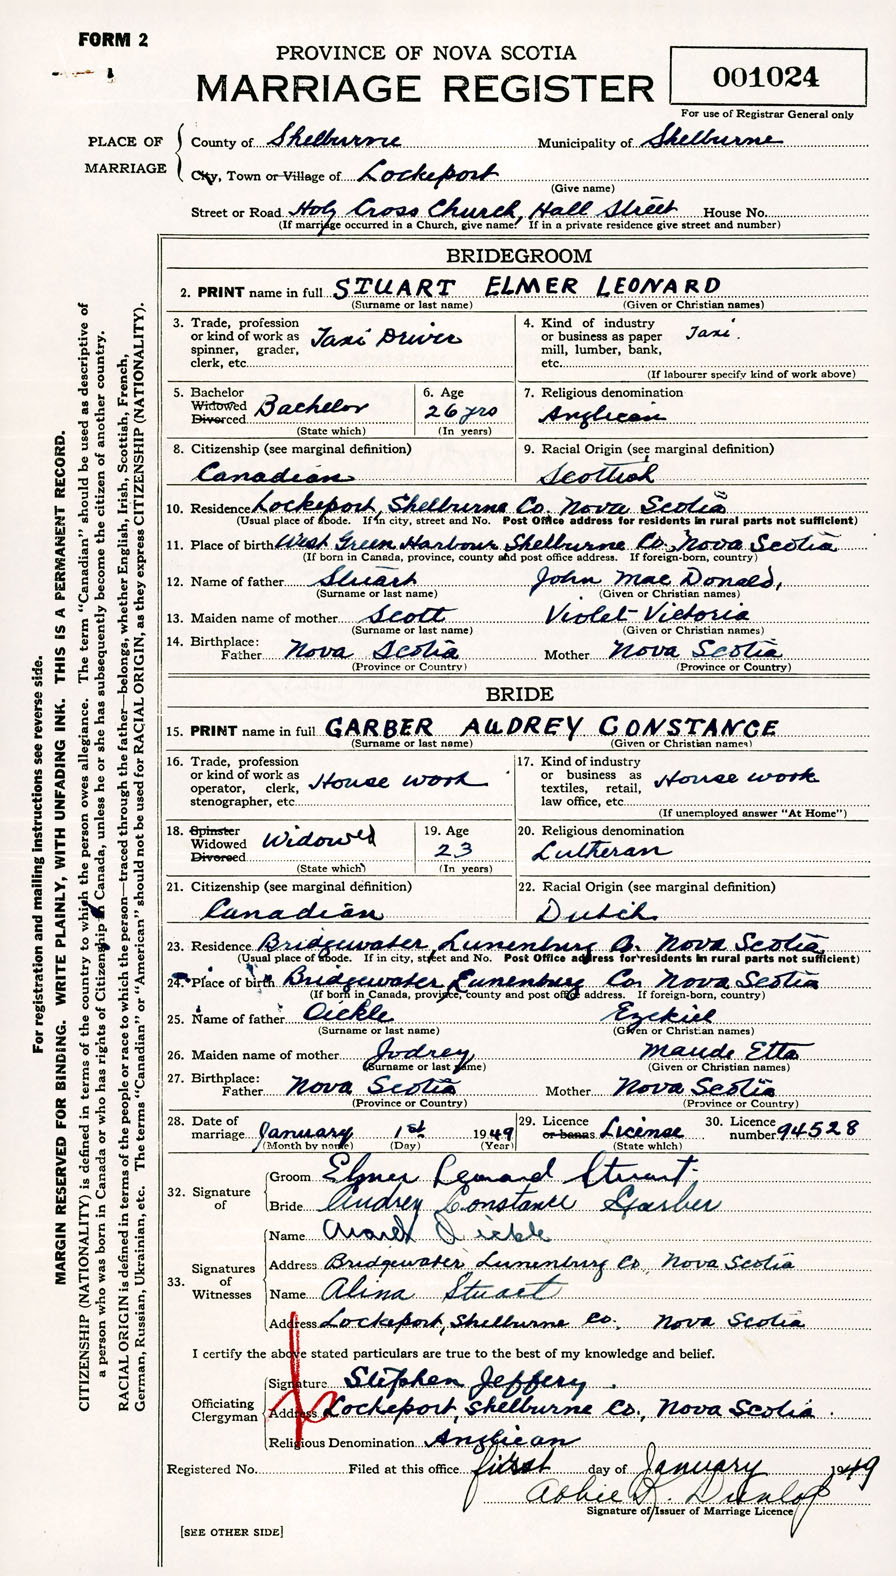 FORM 2
PROVINCE OF NOVA SCOTIA
MARRIAGE REGISTER
001024
For use of Registrar General only
PLACE OF MARRIAGE
County of Shelburne Municipality of Shelburne
City, Town or Village of Lockeport
(Give name)
Street or Road Holy Cross Church, Hall Street House No.
(If marriage occurred in a Church, give name. If in a private residence give street and number)
BRIDEGROOM
2. PRINT name in full STUART ELMER LEONARD
(Surname or last name) (Given or Christian names)
3. Trade, profession or kind of work as spinner, grader, clerk, etc. Taxi Driver
4. Kind of industry or business as paper mill, lumber, bank, etc. Taxi.
(If labourer specify kind of work above)
5. Bachelor Widowed Divorced Bachelor
(State which)
6. Age 26 yrs
(In years)
7. Religious denomination
Anglican
8. Citizenship (see marginal definition)
Canadian
9. Racial Origin (see marginal definition)
Scottish
10. Residence Lockeport, Shelburne Co. Nova Scotia
(Usual place of abode. If in city, street and No. Post Office address for residents in rural parts not sufficient)
11. Place of birth West Green Harbour Shelburne Co. Nova Scotia
(If born in Canada, province, county and post office address. If foreign-born, country)
12. Name of father Stuart John MacDonald,
(Surname or last name) (Given or Christian names)
13. Maiden name of mother Scott Violet Victoria
(Surname or last name) (Given or Christian names)
14. Birthplace:
Father Nova Scotia Mother Nova Scotia
(Province or Country) (Province or Country)
BRIDE
15. PRINT name in full GARBER AUDREY CONSTANCE
(Surname or last name) (Given or Christian names)
16. Trade, profession or kind of work as operator, clerk, stenographer, etc. House work
17. Kind of industry or business as textiles, retail, law office, etc. House work
(If unemployed answer "At Home")
18. Spinster Widowed Divorced Widowed
(State which)
19. Age
23
(In years)
20. Religious denomination
Lutheran
21. Citizenship (see marginal definition)
Canadian
22. Racial Origin (see marginal definition)
Dutch
23. Residence Bridgewater, Lunenburg Co. Nova Scotia
(Usual place of abode. If in city, street and No. Post Office address for residents in rural parts not sufficient)
24. Place of birth Bridgewater Lunenburg Co. Nova Scotia
(If born in Canada, province, county and post office address. If foreign-born, country)
25. Name of father Oickle Ezekiel
(Surname or last name) (Given or Christian names)
26. Maiden name of mother Jodrey Maude Etta
(Surname or last name) (Given or Christian names)
27. Birthplace:
Father Nova Scotia Mother Nova Scotia
(Province or Country) (Province or Country)
28. Date of marriage January 1st 1949
(Month by name) (Day) (Year)
29. Licence or banns License
(State which)
30. Licence number 94528
32. Signature of
Groom Elmer Leonard Stuart
Bride Audrey Constance Garber
33. Signatures of Witnesses
Name Oickle
Address Bridgewater Lunenburg Co, Nova Scotia
Name Alina Stuart
Address Lockeport, Shelburne Co. Nova Scotia
I certify the above stated particulars are true to the best of my knowledge and belief.
Officiating Clergyman
Signature Stephen Jeffery.
Address Lockeport, Shelburne Co., Nova Scotia.
Religious Denomination Anglican
Registered No. Filed at this office first day of January 1949
Abbie K. Dunlop
Signature of Issuer of Marriage Licence
[SEE OTHER SIDE]
For registration and mailing instructions see reverse side.
MARGIN RESERVED FOR BINDING. WRITE PLAINLY, WITH UNFADING INK. THIS IS A PERMANENT RECORD.
CITIZENSHIP (NATIONALITY) is defined in terms of the country to which the person owes allegiance. The term "Canadian" should be used as descriptive of
a person who was born in Canada or who has rights of Citizenship in Canada, unless he or she has subsequently become the citizen of another country.
RACIAL ORIGIN is defined in terms of the people or race to which the person—traced through the father—belongs, whether English, Irish, Scottish, French,
German, Russian, Ukrainian, etc. The terms "Canadian" or "American" should not be used for RACIAL ORIGIN, as they express CITIZENSHIP (NATIONALITY).